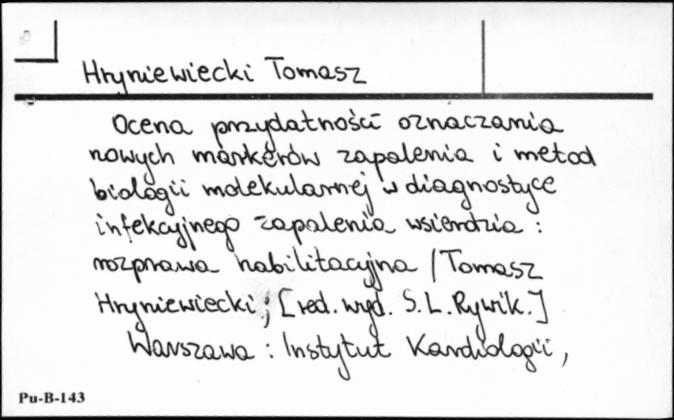 Hryniewiecki Tomasz
Ocena przydatności oznaczania
nowych markerów zapalenia i metod
biologii molekularnej w diagnostyce
infekcyjnego zapalenia wsierdzia :
rozprawa habilitacyjna / Tomasz
Hryniewiecki ; [red. wyd. S.L. Rywik.]
Warszawa : Instytut Kardiologii,
Pu-B-143